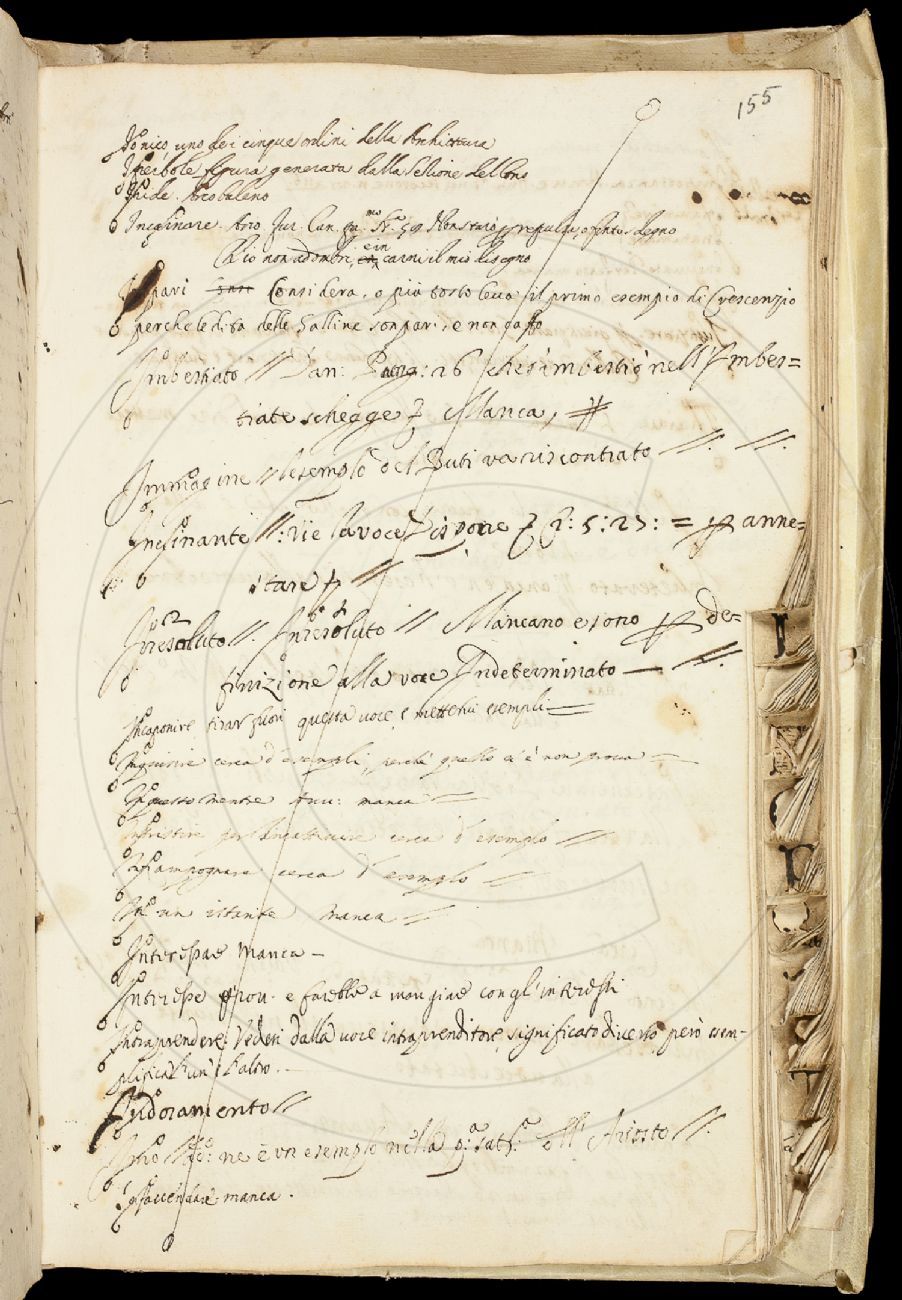 155
Ionico, uno dei cinque ordini della Architettura
Iperbole figura generata dalla Sezione del Cono
Iride. Arcobaleno
Inclinare. Ario. Fur. Can. sdegno
Ch'io non adombri, ein carni il mio disegno
Impari Considera, o più tosto leva il primo esempio di Crescenzio
perche le dita delle Galline son pari, e non caffo
Imbestiato // Dan: Purg: 26 che s'imbestiò nell'Imbes=
tiate schegge Manca,
Immagine // l'esemplo del Buti va riscontrato //. //.
Inclinante //: vie la voce Z: 5: 23: = anne=
stare //
Iresoluto //. Inresoluto // Mancano e sono de=
finizione alla voce Indeterminato — //.
Incaponire tirar fuori questa voce, e mettervi esempli
Inquirire cerca d'esempli, perchè quello ci è non prova
In questo mentre Avv: manca
per Incattivire cerca d'esemplo //
Inzampognare cerca d'esemplo
In un istante manca //
Interessare Manca —
Interesse prov. e farebbe a mangiare con gl'interessi
Intraprendere Vedesi dalla voce intraprenditore, significato diverso, però esem-
plifica l'un' e l'altro. —
Indoramento //
ne è un esemplo nella Sat: dell'Ariosto //.
Infaccendare manca.